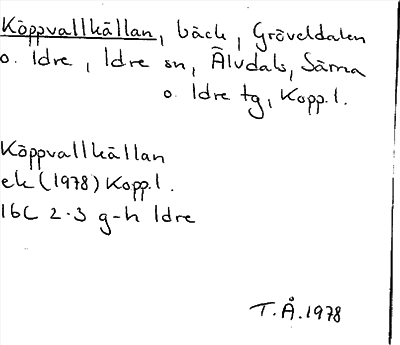 Köppvallkällan, bäck, Gröveldalen
o. Idre, Idre sn, Älvdals, Särna
o. Idre tg, Kopp. l.
Köppvallkällan
ek (1978) Kopp. l.
16C 2-3 g-h Idre
T.Å. 1978